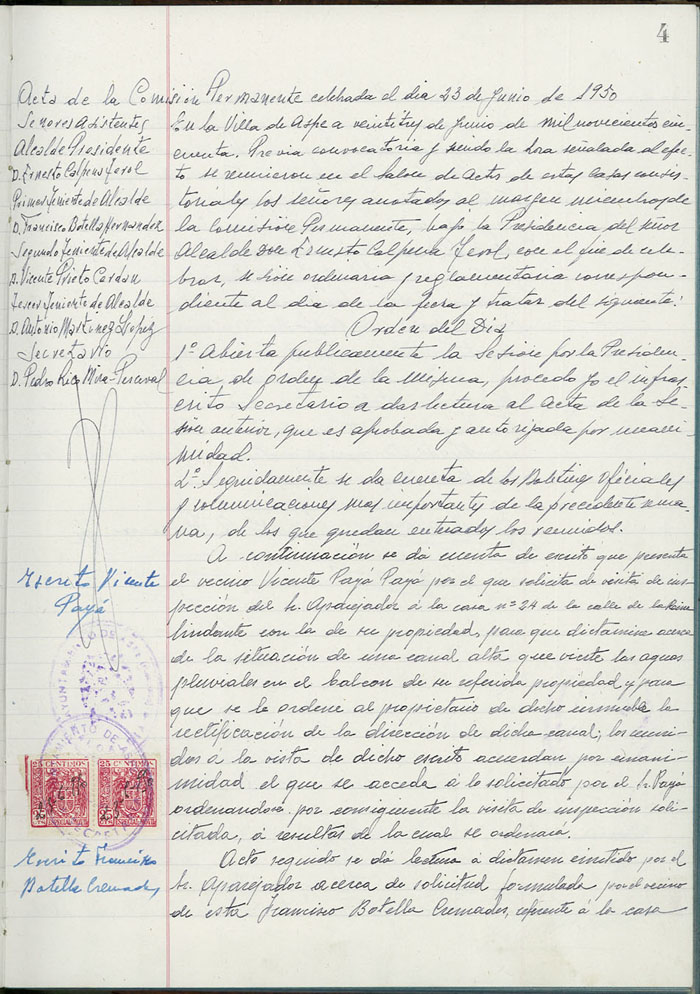 4
Acta de la Comisión Permanente celebrada el dia 23 de Junio de 1950
Señores Asistentes
Alcalde Presidente
D. Ernesto Calpena Ferol
Primer Teniente de Alcalde
D. Francisco Botella Hernandez
Segundo Teniente de Alcalde
D. Vicente Prieto Cerdan
Tercer Teniente de Alcalde
D. Antonio Martinez Lopez
Secretario
D. Pedro Rico Mira-Perceval
En la Villa de Aspe a veintitres de Junio de mil novecientos cin-
cuenta. Previa convocatoria y siendo la hora señalada al efec-
to se reunieron en el Salon de Actos de estas Casas consis-
toriales los señores anotados al margen miembros de
la Comision Permanente, bajo la Presidencia del señor
Alcalde Don Ernesto Calpena Ferol, con el fin de cele-
brar, sesion ordinaria y reglamentaria correspon-
diente al dia de la fecra y tratar del siguiente:
Orden del Dia
1º Abierta publicamente la Sesion por la Presiden-
cia, de orden de la misma, procedo yo el infras-
crito Secretario a dar lectura al Acta de la Se-
sion anterior, que es aprobada y autorizada por unani-
midad.
2º. Seguidamente se da cuenta de los Boletines oficiales
y comunicaciones mas importantes de la precedente sema-
na, de los que quedan enterados los reunidos.
Escrito Vicente
Payá
A continuación se dá cuenta de escrito que presenta
el vecino Vicente Payá Payá por el que solicita de visita de ins-
pección del Sr. Aparejador á la casa nº 24 de la calle de la
lindante con la de su propiedad, para que dictamine acerca
de la situación de una canal alta que vierte las aguas
pluviales en el balcon de su referida propiedad y para
que se le ordene al propietario de dicho inmueble la
rectificación de la dirección de dicha canal; los reuni-
dos á la vista de dicho escrito acuerdan por unani-
midad el que se acceda á lo solicitado por el Sr. Payá
ordenandose por consiguiente la visita de inspección soli-
citada, á resultas de la cual se ordenará.
AYUNTAMIENTO DE ASPE
25 CENTIMOS
25 CENTIMOS
Escrito Francisco
Botella Cremades
Acto seguido se dá lectura á dictamen emitido por el
Sr. Aparejador acerca de solicitud formulada por el vecino
de esta Francisco Botella Cremades, referente á la casa